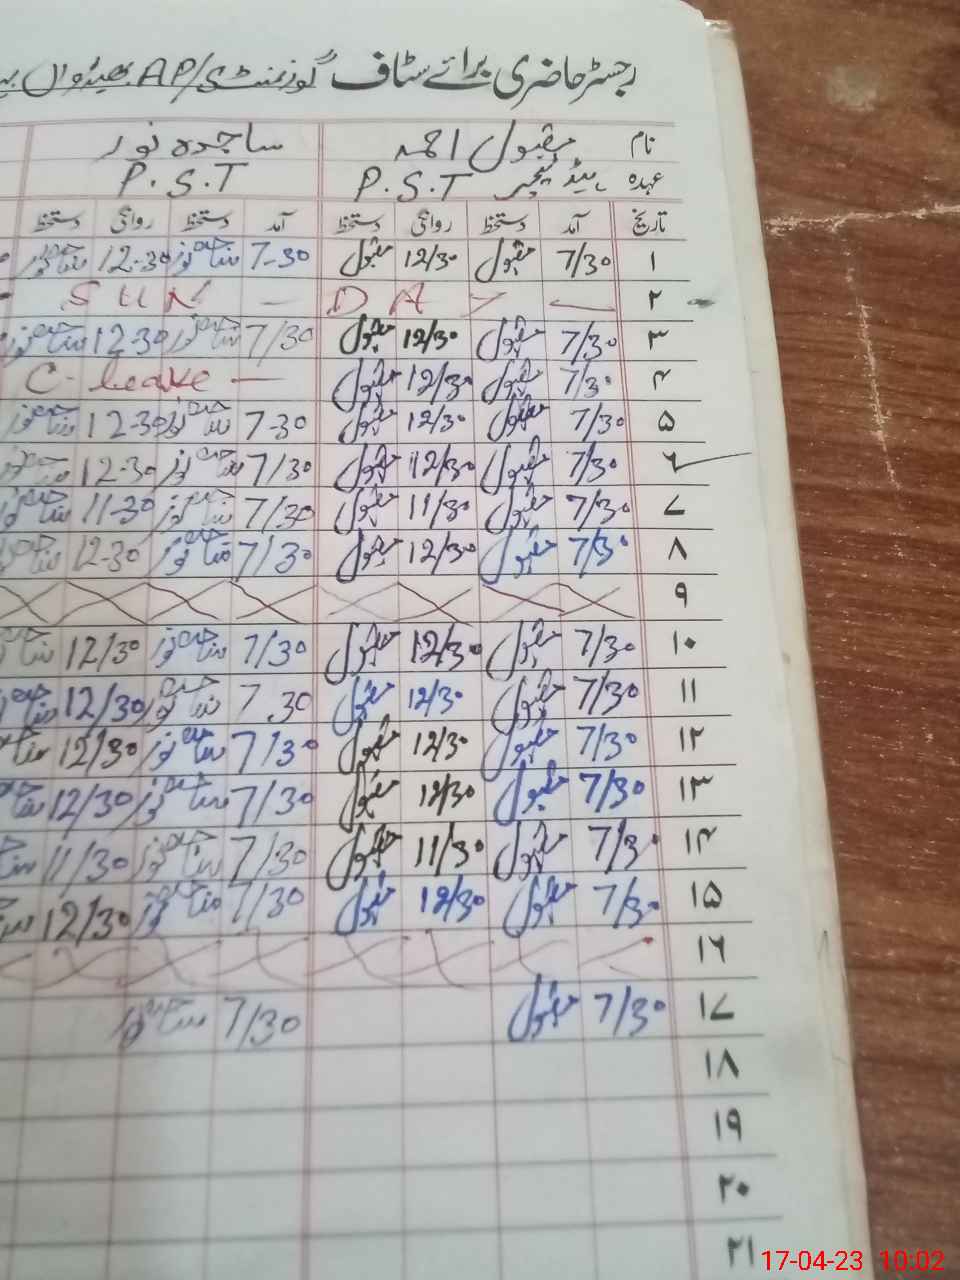 رجسٹر حاضری برائے سٹاف گورنمنٹ AP/S بھیڈوال
نام مقبول احمد ساجدہ نور
عہدہ ہیڈ ٹیچر P.S.T P.S.T
تاریخ آمد دستخط روانگی دستخط آمد دستخط روانگی دستخط
۱ 7/30 مقبول 12/30 مقبول 7-30 ساجدہ نور 12-30 ساجدہ نور
۲ SUN — DAY —
۳ 7/30 مقبول 12/30 مقبول 7/30 ساجدہ نور 12-30 ساجدہ نور
۴ 7/30 مقبول 12/30 مقبول C-leave —
۵ 7/30 مقبول 12/30 مقبول 7-30 ساجدہ نور 12-30 ساجدہ نور
۶ 7/30 مقبول 12/30 مقبول 7/30 ساجدہ نور 12-30 ساجدہ نور
۷ 7/30 مقبول 11/30 مقبول 7/30 ساجدہ نور 11-30 ساجدہ نور
۸ 7/30 مقبول 12/30 مقبول 7/30 ساجدہ نور 12-30 ساجدہ
۹
۱۰ 7/30 مقبول 12/30 مقبول 7/30 ساجدہ نور 12/30 ساجدہ
۱۱ 7/30 مقبول 12/30 مقبول 7.30 ساجدہ نور 12/30 ساجدہ
۱۲ 7/30 مقبول 12/30 مقبول 7/30 ساجدہ نور 12/30
۱۳ 7/30 مقبول 12/30 مقبول 7/30 ساجدہ نور 12/30
۱۴ 7/30 مقبول 11/30 مقبول 7/30 ساجدہ نور 11/30
۱۵ 7/30 مقبول 12/30 مقبول 7/30 ساجدہ نور 12/30
۱۶
۱۷ 7/30 مقبول 7/30 ساجدہ نور
۱۸
۱۹
۲۰
۲۱
17-04-23 10:02